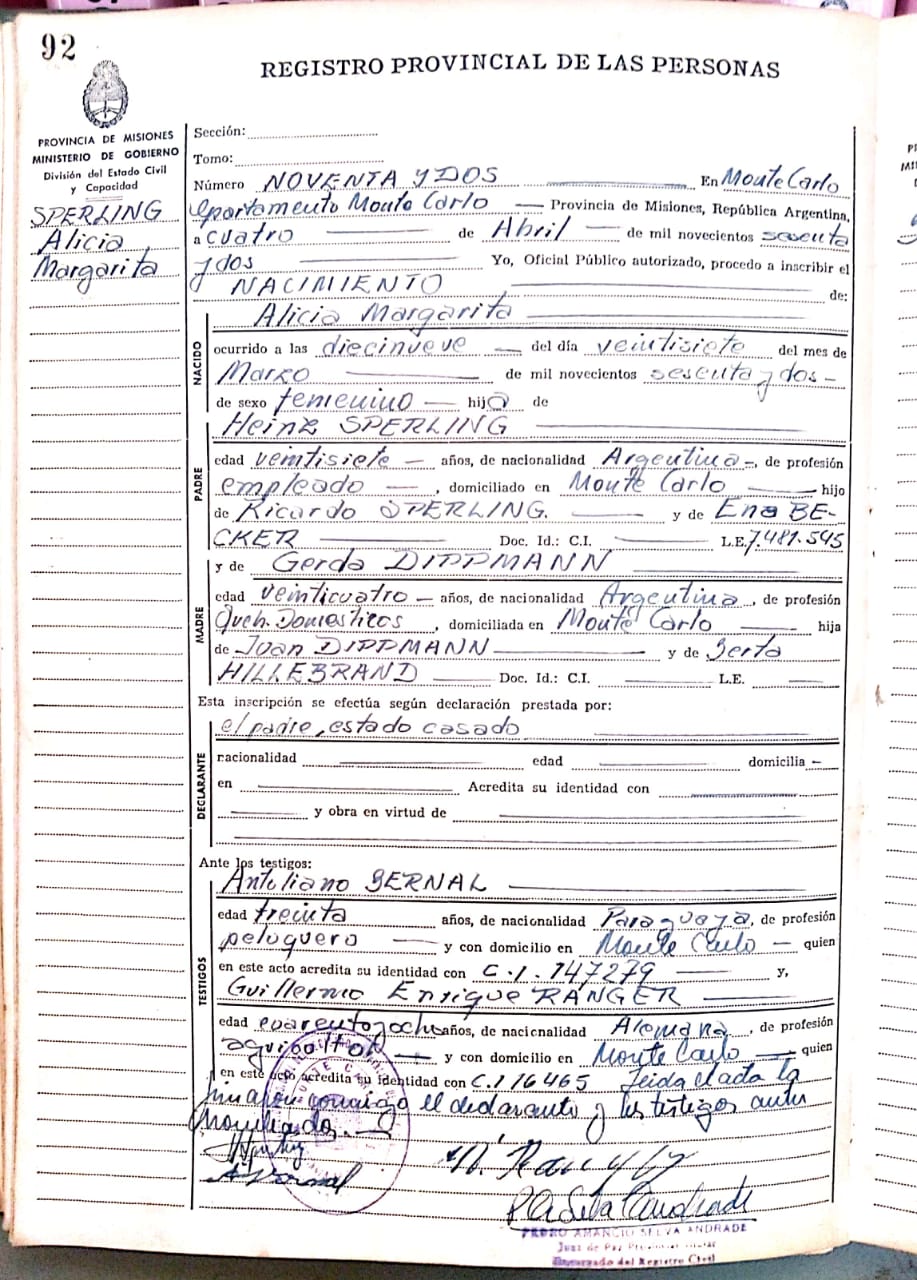 92
REGISTRO PROVINCIAL DE LAS PERSONAS
PROVINCIA DE MISIONES
MINISTERIO DE GOBIERNO
División del Estado Civil
y Capacidad
SPERLING
Alicia
Margarita
Sección:
Tomo:
Número NOVENTA Y DOS En Monte Carlo
epartamento Monte Carlo Provincia de Misiones, República Argentina,
a cuatro de Abril de mil novecientos sesenta
y dos Yo, Oficial Público autorizado, procedo a inscribir el
NACIMIENTO de:
NACIDO
Alicia Margarita
ocurrido a las diecinueve del día veintisiete del mes de
Marzo de mil novecientos sesenta y dos
de sexo femenino hija de
PADRE
Heinz SPERLING
edad veintisiete años, de nacionalidad Argentina, de profesión
empleado, domiciliado en Monte Carlo hijo
de Ricardo SPERLING. y de Ena BE-
CKER Doc. Id.: C.I. L.E. 7.481.545
MADRE
y de Gerda DIPPMANN
edad veinticuatro años, de nacionalidad Argentina, de profesión
Queh. Domesticos, domiciliada en Monte Carlo hija
de Juan DIPPMANN y de Berta
HILLEBRAND Doc. Id.: C.I. L.E.
Esta inscripción se efectúa según declaración prestada por:
DECLARANTE
el padre, estado casado
nacionalidad edad domicilia
en Acredita su identidad con
y obra en virtud de
Ante los testigos:
TESTIGOS
BERNAL
edad treinta años, de nacionalidad Paraguaya, de profesión
peluquero y con domicilio en Monte Carlo quien
en este acto acredita su identidad con C.I. 147279 y,
Guillermo Enrique RANGER
edad cuarentayocho años, de nacionalidad Alemana, de profesión
aguicultor y con domicilio en Monte Carlo quien
en este acto acredita su identidad con C.I 16465 Leida el acta la
firmaron conmigo el declarante y los testigos antes
PEDRO AMANCIO SELVA ANDRADE
Juez de Paz
Encargado del Registro Civil